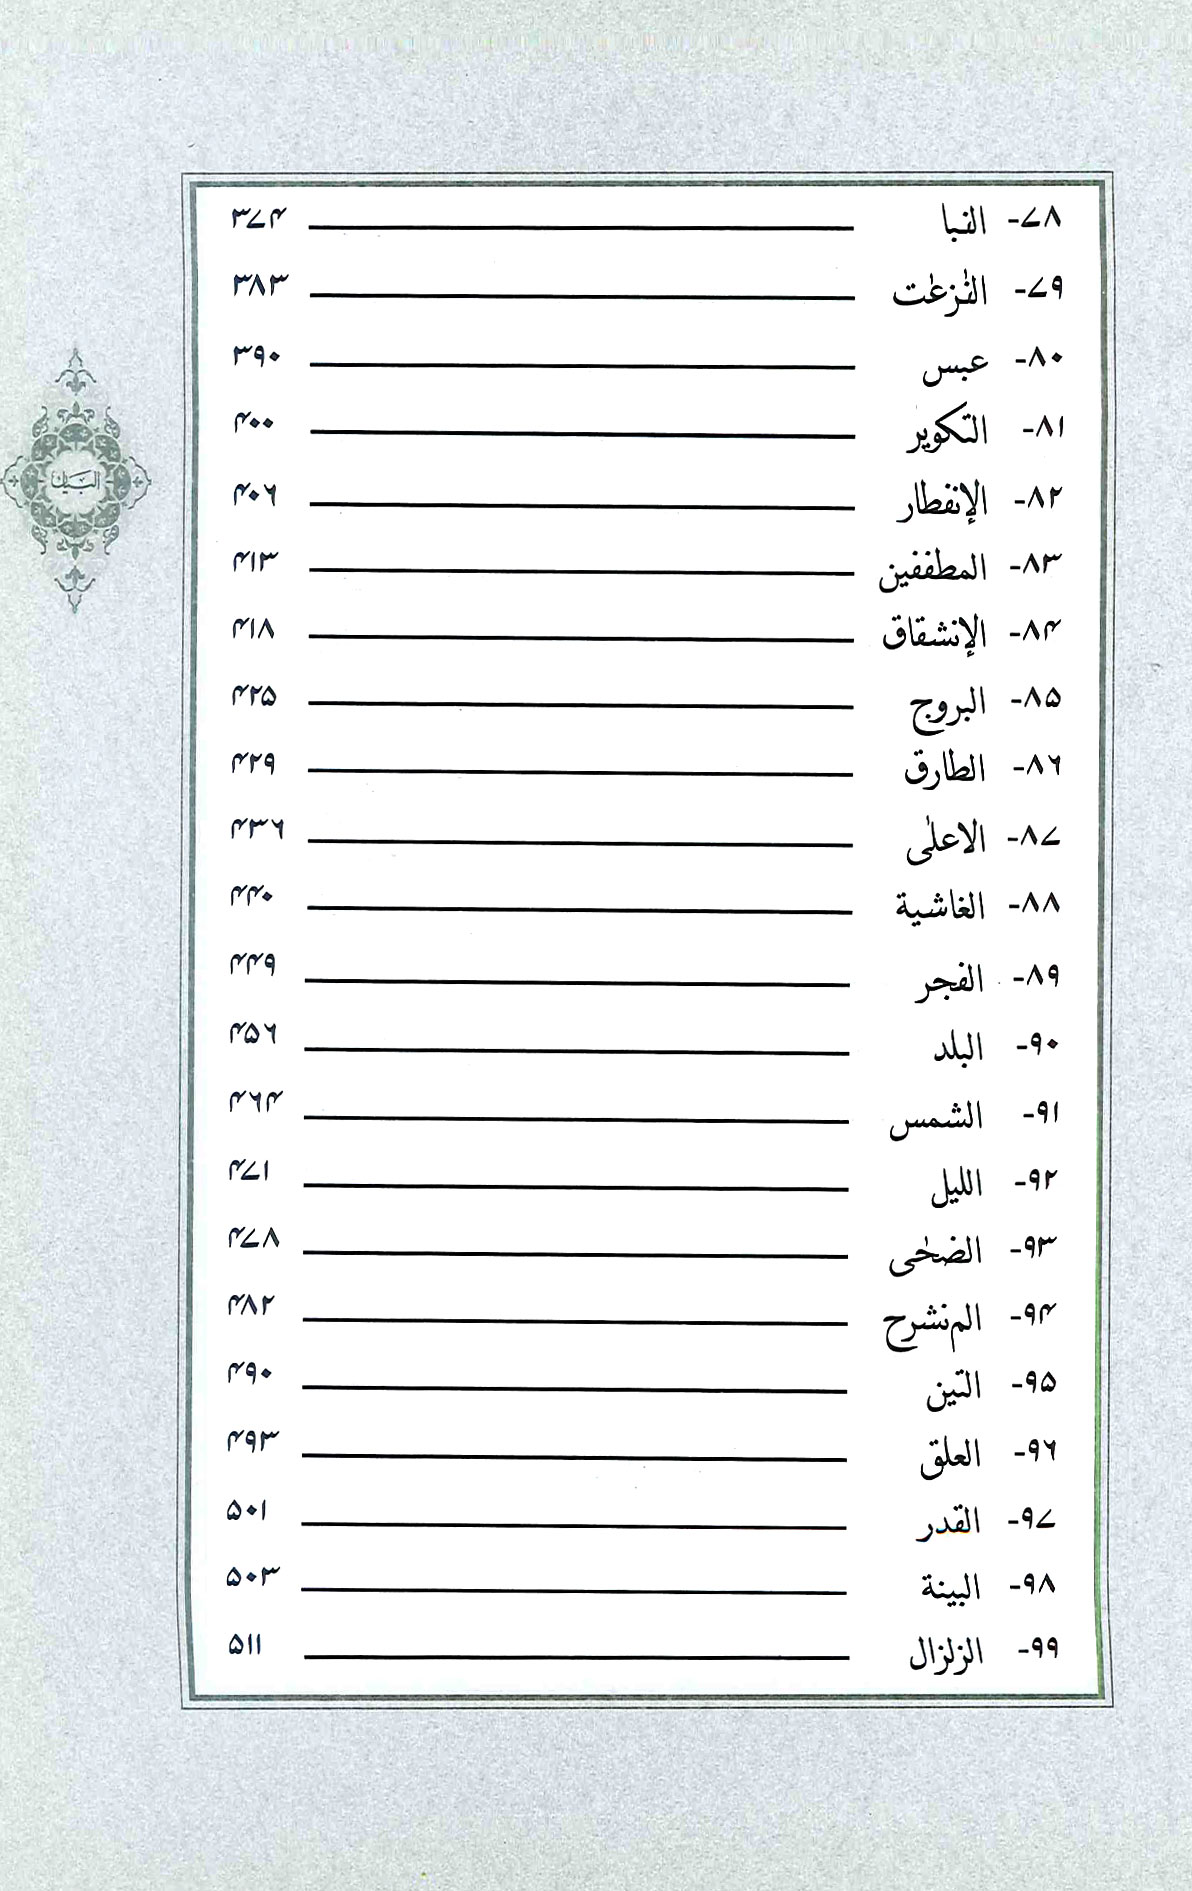 ۷۸- النبا ۳۷۴
۷۹- النٰزعٰت ۳۸۳
۸۰- عبس ۳۹۰
۸۱- التکویر ۴۰۰
۸۲- الإنفطار ۴۰۶
۸۳- المطففین ۴۱۳
۸۴- الإنشقاق ۴۱۸
۸۵- البروج ۴۲۵
۸۶- الطارق ۴۲۹
۸۷- الاعلٰی ۴۳۶
۸۸- الغاشیة ۴۴۰
۸۹- الفجر ۴۴۹
۹۰- البلد ۴۵۶
۹۱- الشمس ۴۶۴
۹۲- اللیل ۴۷۱
۹۳- الضحٰی ۴۷۸
۹۴- الم نشرح ۴۸۲
۹۵- التین ۴۹۰
۹۶- العلق ۴۹۳
۹۷- القدر ۵۰۱
۹۸- البینة ۵۰۳
۹۹- الزلزال ۵۱۱